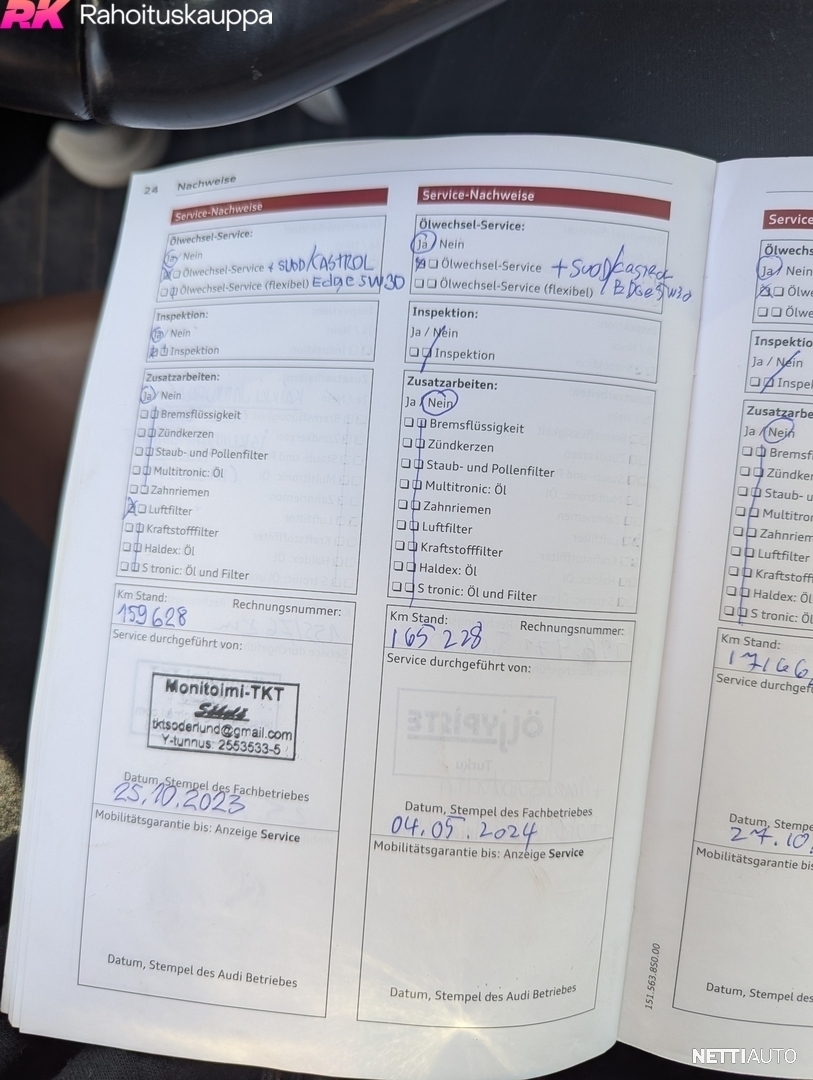 RK Rahoituskauppa
24 Nachweise
Service-Nachweise
Ölwechsel-Service:
Ja / Nein
Ölwechsel-Service + SUOD/KASTROL
Ölwechsel-Service (flexibel) Edge 5W30
Inspektion:
Ja / Nein
Inspektion
Zusatzarbeiten:
Ja / Nein
Bremsflüssigkeit
Zündkerzen
Staub- und Pollenfilter
Multitronic: Öl
Zahnriemen
Luftfilter
Kraftstofffilter
Haldex: Öl
S tronic: Öl und Filter
Km Stand: Rechnungsnummer:
159628
Service durchgeführt von:
Monitoimi-TKT
tktsoderlund@gmail.com
Y-tunnus: 2553533-5
Datum, Stempel des Fachbetriebes
25.10.2023
Mobilitätsgarantie bis: Anzeige Service
Datum, Stempel des Audi Betriebes
Service-Nachweise
Ölwechsel-Service:
Ja / Nein
Ölwechsel-Service + SUOD/CASTROL
Ölwechsel-Service (flexibel) EDGE 5W30
Inspektion:
Ja / Nein
Inspektion
Zusatzarbeiten:
Ja / Nein
Bremsflüssigkeit
Zündkerzen
Staub- und Pollenfilter
Multitronic: Öl
Zahnriemen
Luftfilter
Kraftstofffilter
Haldex: Öl
S tronic: Öl und Filter
Km Stand: Rechnungsnummer:
165 228
Service durchgeführt von:
ÖLJYPISTE
Turku
Datum, Stempel des Fachbetriebes
04.05.2024
Mobilitätsgarantie bis: Anzeige Service
Datum, Stempel des Audi Betriebes
151.563.850.00
Service
Ölwechs
Ja / Nein
Ölwe
Ölwe
Inspektio
Ja / Nein
Inspe
Zusatzarbe
Ja / Nein
Bremsfl
Zündke
Staub- u
Multitro
Zahnriem
Luftfilter
Kraftstoff
Haldex: Öl
S tronic: Öl
Km Stand:
17166
Service durchgef
Datum, Stempe
27.10.
Mobilitätsgarantie bis
Datum, Stempel des
NETTIAUTO